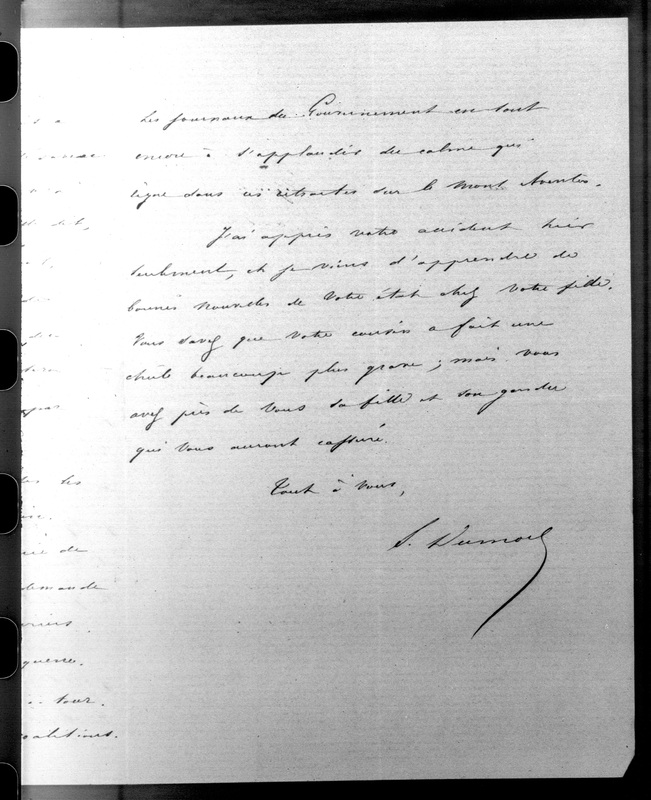 Les journaux du Gouvernement en sont
encore à s'applaudir du calme qui
règne dans ces retraites sur le Mont Aventin.
J'ai appris votre accident hier
seulement, et je viens d'apprendre de
bonnes nouvelles de votre état chez votre fille.
Vous savez que votre cousin a fait une
chûte beaucoup plus grave ; mais vous
avez près de vous sa fille et son gendre
qui vous auront rassuré.
Tout à vous,
S. Dumon
de
demande
guerre.